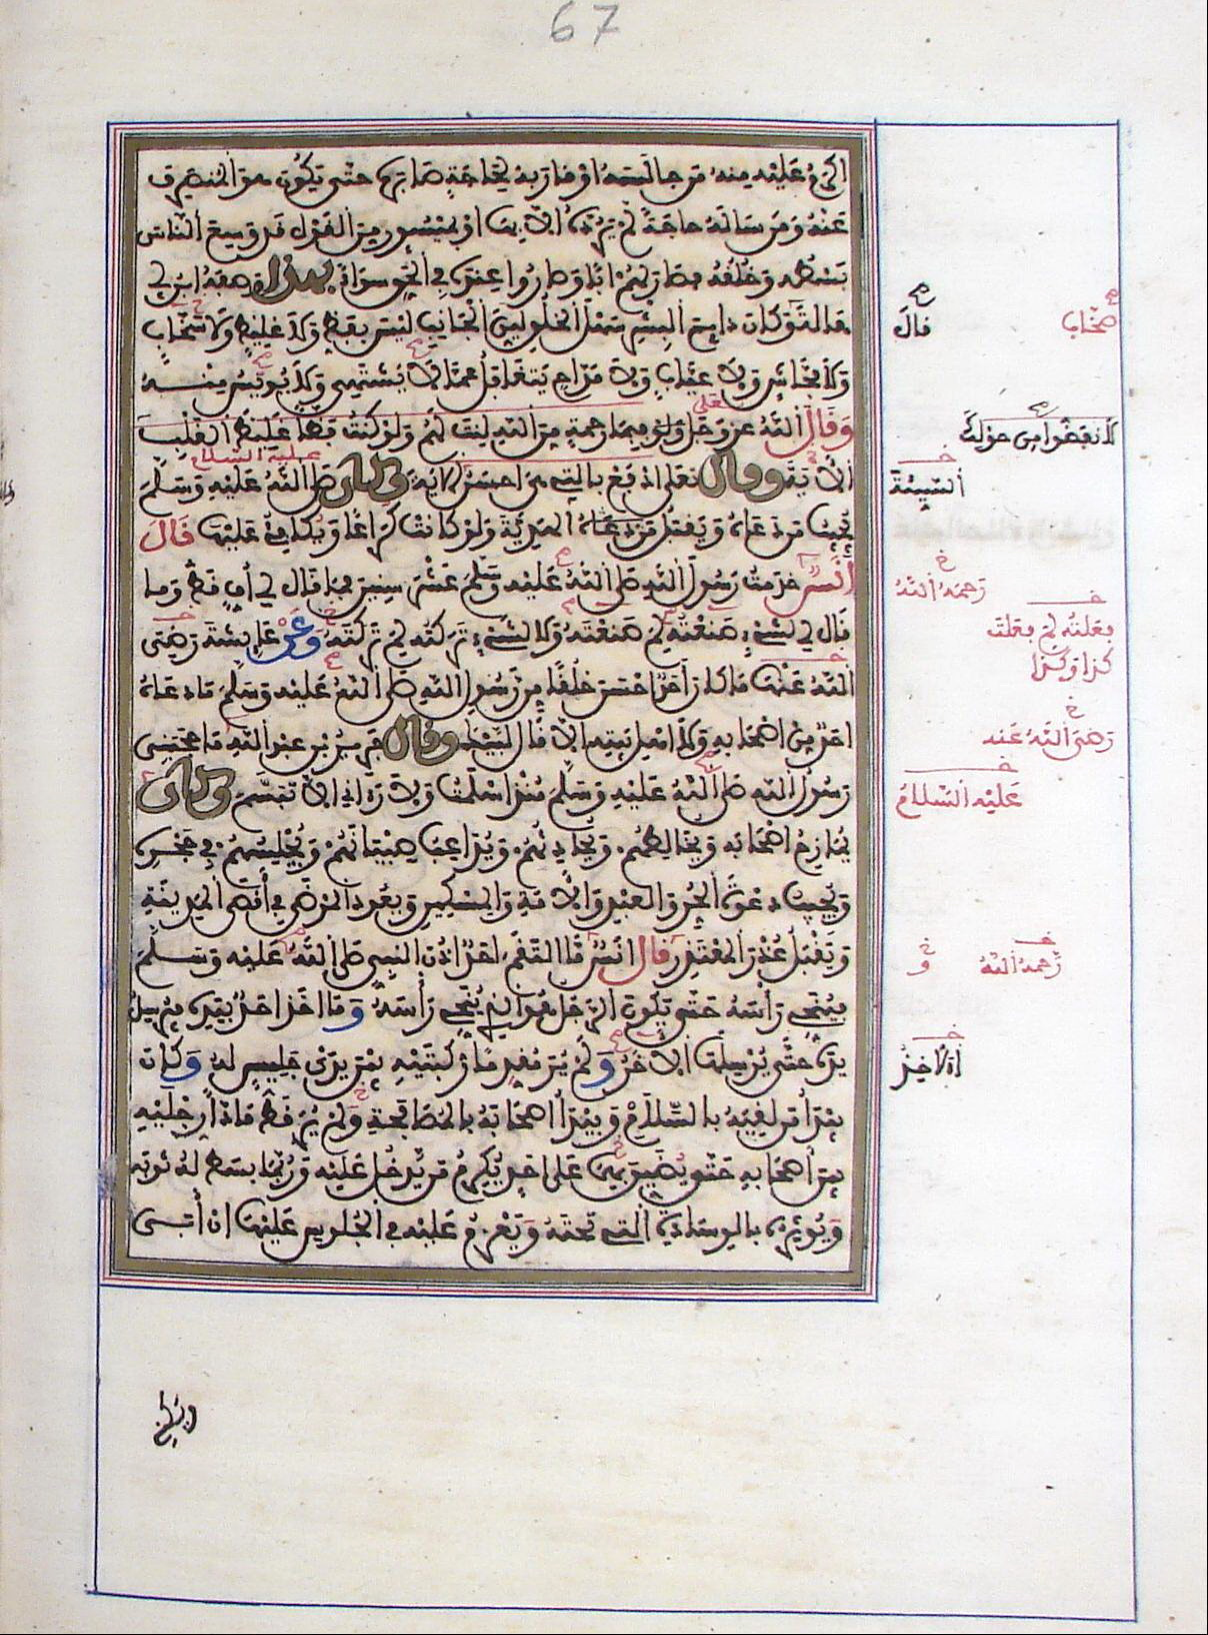 67
اكرم عليه منه من جالسه او قاربه لحاجة صابره حتى يكون هو المنصرف
عنه ومن سأله حاجة لم يرده الا بها او بميسور من القول قد وسع الناس
بسطه وخلقه فصار لهم ابا وصاروا عنده في الحق سواء بهذا وصفه ابن ابي
هالة وكان دايم البشر سهل الخلق لين الجانب ليس بفظ ولا غليظ ولا سخاب
ولا فحاش ولا عياب ولا مداح يتغافل عما لا يشتهي ولا يويس منه
وقال الله عز وجل فبما رحمة من الله لنت لهم ولو كنت فظا غليظ القلب
الآية وقال تعلى ادفع بالتي هي احسن الاية وكان صلى الله عليه وسلم
يجيب من دعاه ويقبل الهدية ولو كانت كراعا ويكافئ عليها قال
أنس خدمت رسول الله صلى الله عليه وسلم عشر سنين فما قال لي أف قط وما
قال لي لشيء صنعته لم صنعته ولا لشيء تركته لم تركته وعن عائشة رضي
الله عنها ما كان أحد احسن خلقا من رسول الله صلى الله عليه وسلم ما دعاه
احد من اصحابه ولا اهل بيته الا قال لبيك وقال جرير بن عبد الله ما حجبني
رسول الله صلى الله عليه وسلم منذ اسلمت ولا رءاني الا تبسم وكان
يمازح اصحابه ويخالطهم ويحادثهم ويداعب صبيانهم ويجلسهم في حجره
ويجيب دعوة الحر والعبد والأمة والمسكين ويعود المرضى في أقصى المدينة
ويقبل عذر المعتذر قال انس ما التقم احد اذن النبي صلى الله عليه وسلم
فينحي رأسه حتى يكون الرجل هو الذي ينحي رأسه وما اخذ احد بيده فيرسل
يده حتى يرسلها الاخر ولم ير مقدما ركبتيه بين يدي جليس له وكان
يبدأ من لقيه بالسلام ويبدأ اصحابه بالمصافحة ولم ير قط مادا رجليه
بين أصحابه حتى يضيق بهما على احد يكرم من يدخل عليه وربما بسط له ثوبه
ويؤثره بالوسادة التي تحته ويعزم عليه في الجلوس عليها ان أبى
صخاب
قال
لانفضوا من حولك
عليه السلام
السيئة
رحمه الله
فعلته لم فعلت
كذا وكذا
رضي الله عنه
عليه السلام
رحمه الله
و
الاخذ